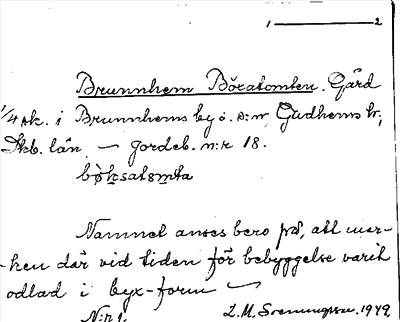 1 ——— 2
Brunnhem Böxatomten. Gård
1/4 sk. i Brunnhems by o. s:n, Gudhems hr,
Skb. län. — jordeb. n:r 18.
Namnet anses bero på, att mar-
-ken där vid tiden för bebyggelse varit
odlad i byx-form
N:r 1. L.M. Svenungsson. 1949